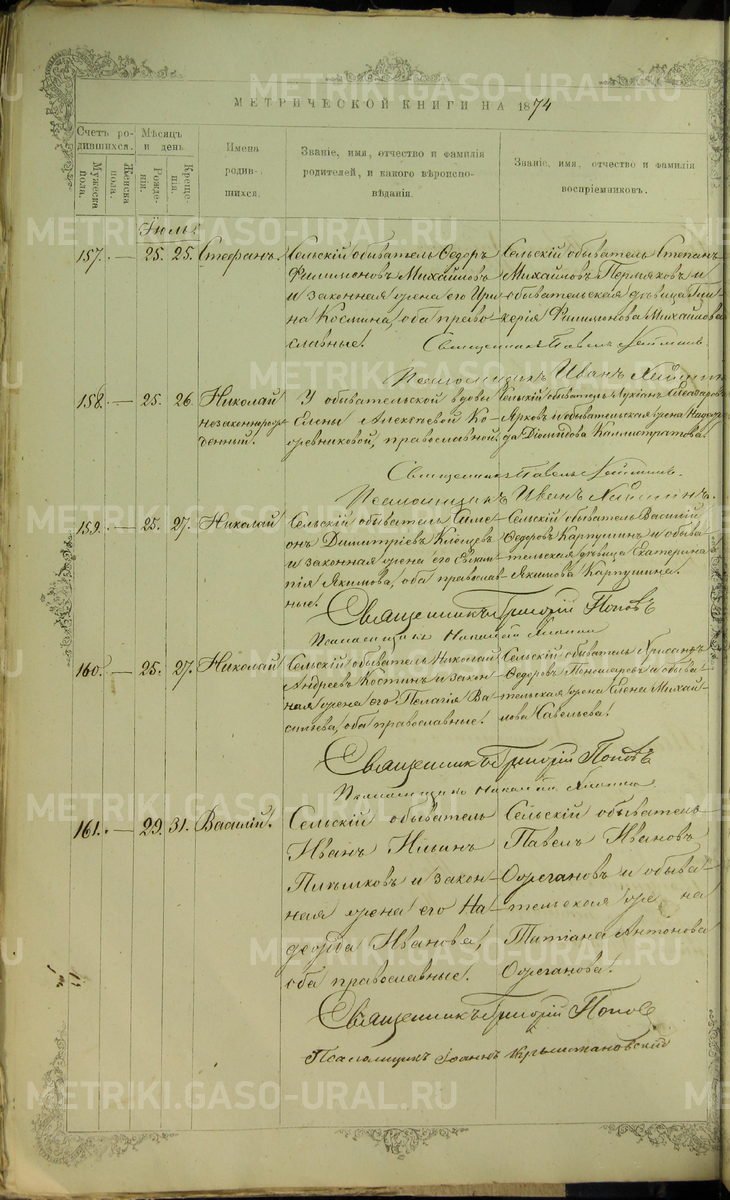 МЕТРИЧЕСКОЙ КНИГИ НА 1874
Счетъ ро-
дившихся.
Мѣсяцъ
и день
Мужеска
пола.
Женска
пола.
Рожде-
нія.
Креще-
нія.
Имена
родив-
шихся.
Званіе, имя, отчество и фамилія
родителей, и какого вѣроиспо-
вѣданія.
Званіе, имя, отчество и фамилія
воспріемниковъ.
Іюль
157. — 25. 25. Стефанъ.
Сельскій обыватель Ѳедоръ
Филимоновъ Михайловъ
и законная жена его Ири-
на Космина, оба право-
славные.
Сельскій обыватель Степанъ
Михайловъ Пермяковъ и
обывательская дѣвица
Филимонова Михайлова
Священникъ Павелъ
Псаломщикъ Иванъ
158. — 25. 26. Николай
незаконнорож-
денный.
У обывательской вдовы
Елены Алексѣевой Ко-
ровниковой, православной.
Сельскій обыватель
и обывательская жена
Діомидова Каллистратова.
Священникъ Павелъ
Псаломщикъ Иванъ
159. — 25. 27. Николай
Сельскій обыватель Симе-
онъ Димитріевъ
и законная жена его
Якимова, оба православ-
ные.
Сельскій обыватель Василій
Ѳедоровъ Карпушинъ и обыва-
тельская дѣвица Екатерина
Якимова Карпушина.
Священникъ Григорій Поповъ
Псаломщикъ
160. — 25. 27. Николай
Сельскій обыватель Николай
Андреевъ Костинъ и закон-
ная жена его Пелагія Ва-
сильева, оба православные.
Сельскій обыватель Хрисанъ
Ѳедоровъ Пономаревъ и обыва-
тельская жена Елена Михай-
лова Савельева.
Священникъ Григорій Поповъ
Псаломщикъ
161. — 29. 31. Василій.
Сельскій обыватель
Иванъ Ильинъ
Пѣшковъ и закон-
ная жена его На-
дежда Иванова,
оба православные.
Сельскій обыватель
Павелъ Ивановъ
Ожегановъ и обыва-
тельская жена
Татіана Антонова
Ожеганова.
Священникъ Григорій Поповъ
Псаломщикъ Іоаннъ Крыжановскій
METRIKI.GASO-URAL.RU